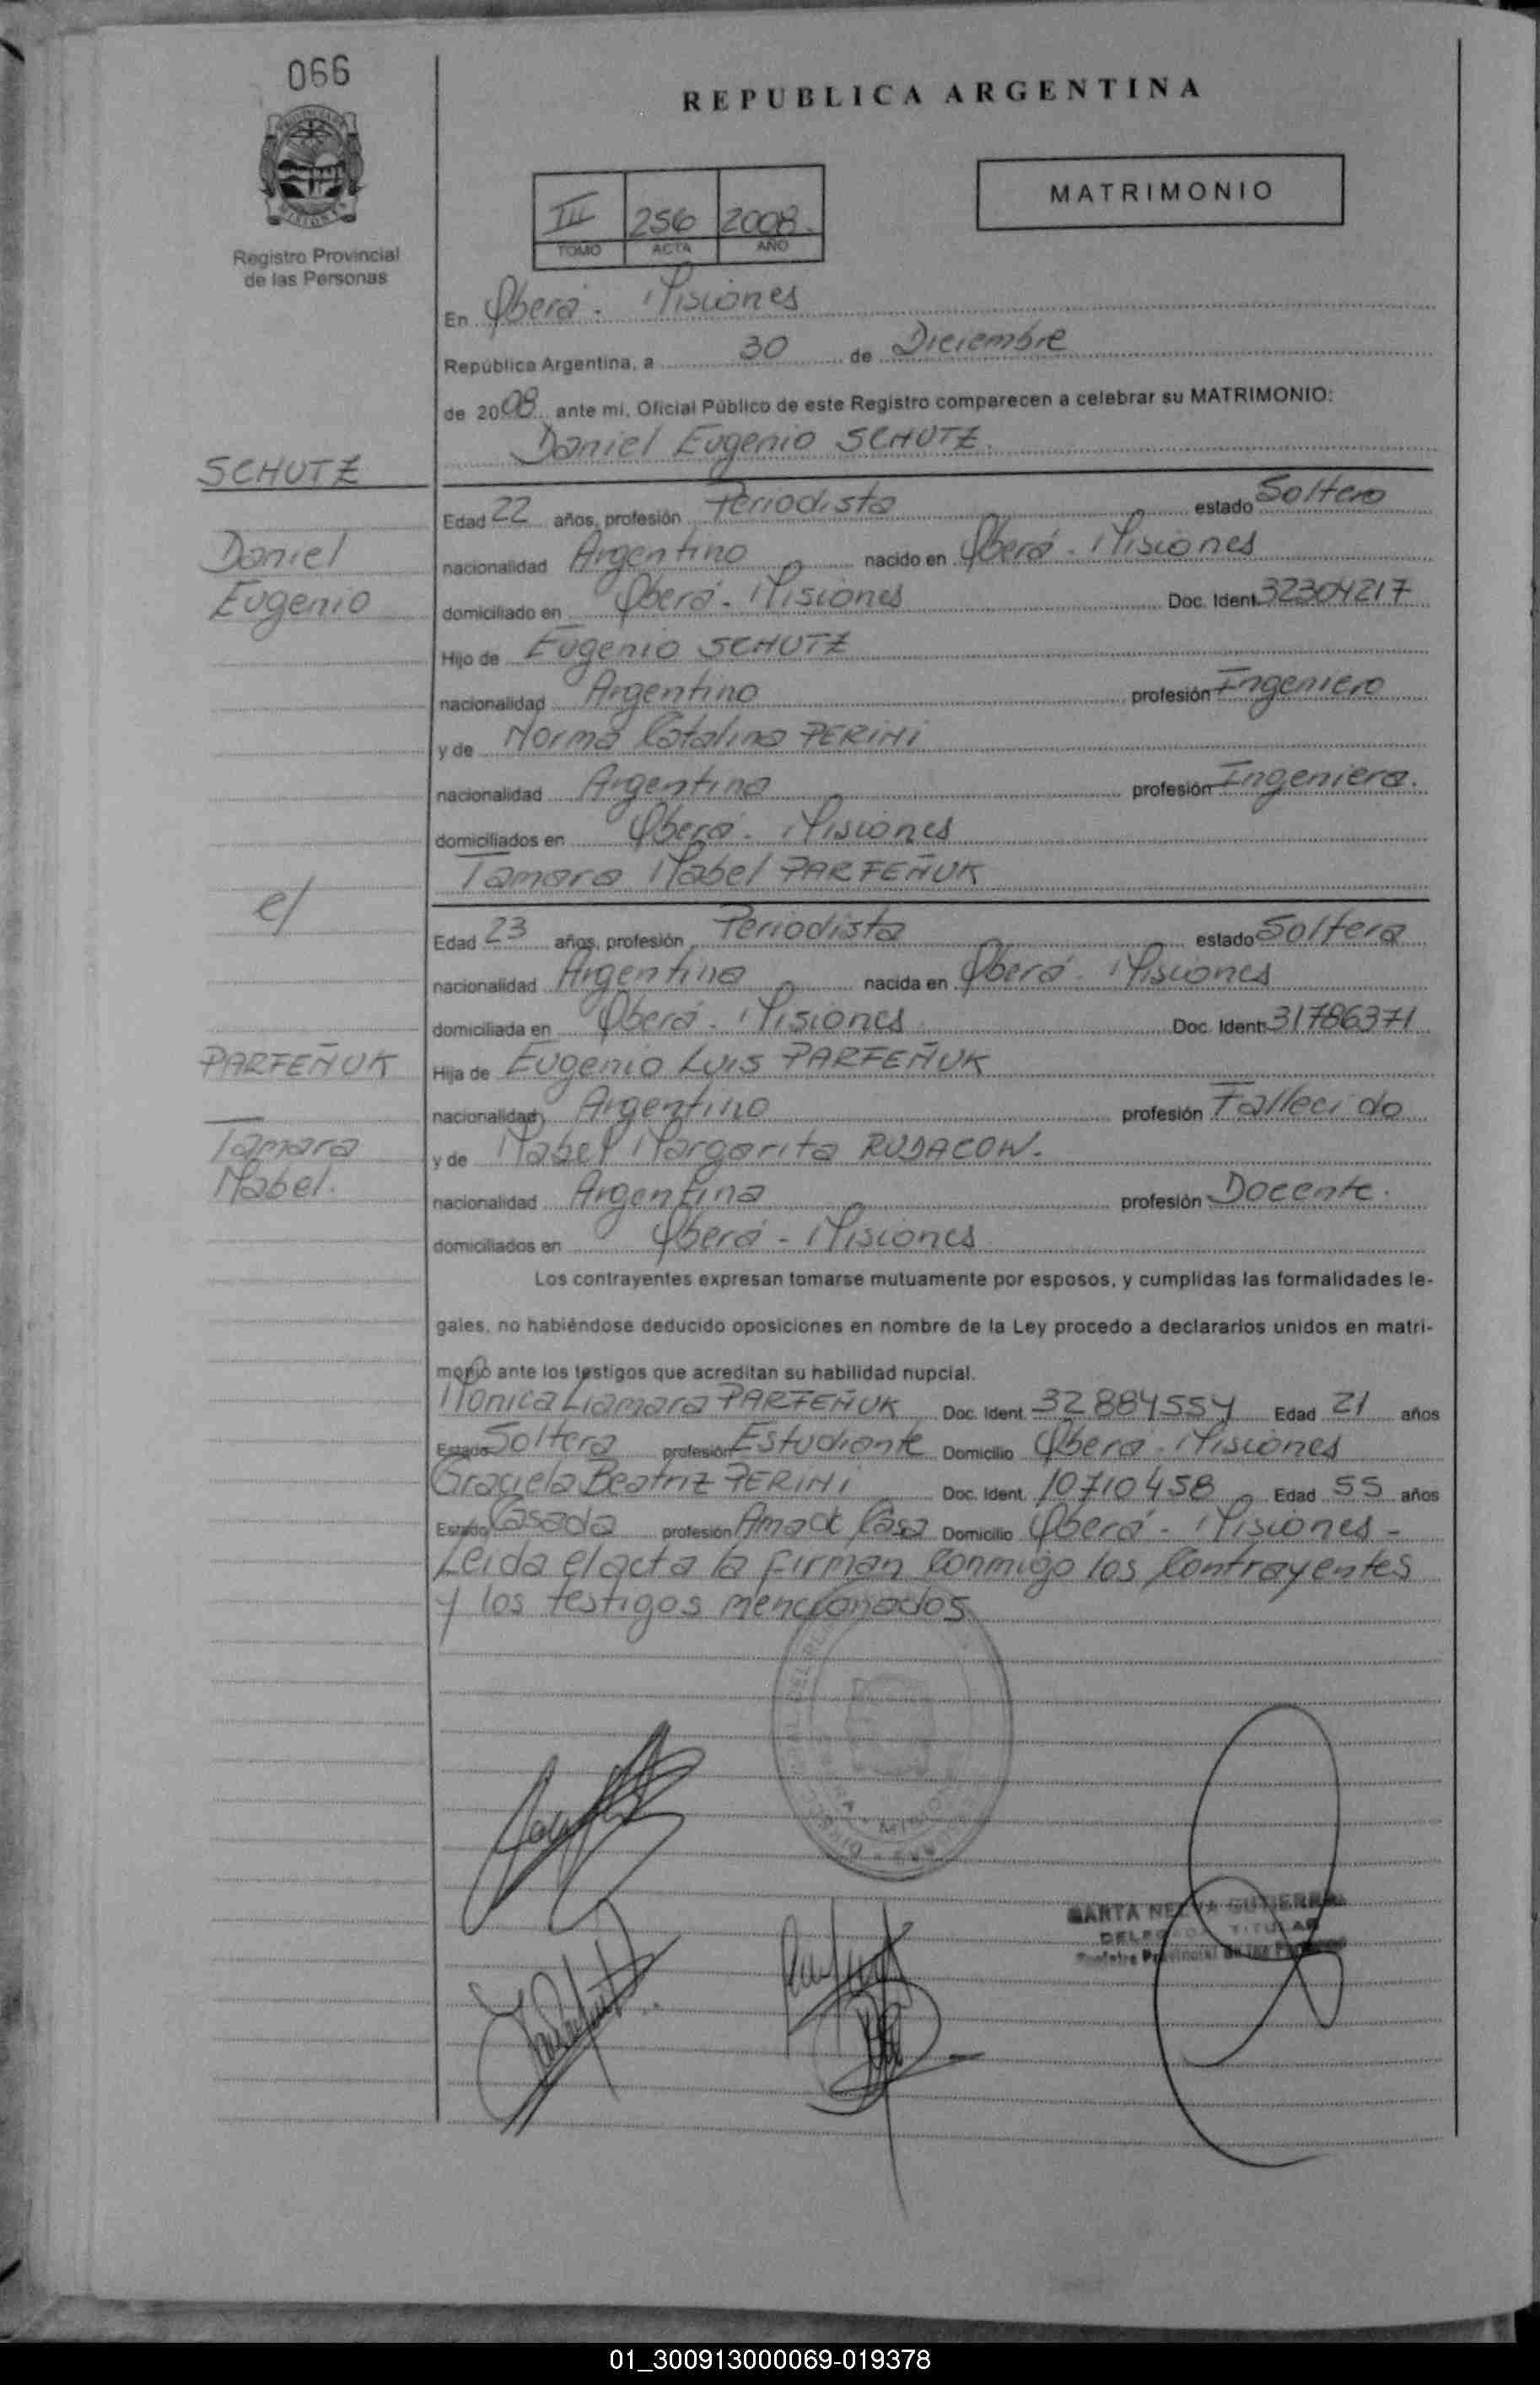 066
REPUBLICA ARGENTINA
MATRIMONIO
III 256 2008.
TOMO ACTA AÑO
Registro Provincial
de las Personas
En Oberá - Misiones
República Argentina, a 30 de Diciembre
de 2008 ante mi, Oficial Público de este Registro comparecen a celebrar su MATRIMONIO:
Daniel Eugenio SCHUTZ.
SCHUTZ
Edad 22 años, profesión Periodista estado Soltero
Daniel
nacionalidad Argentino nacido en Oberá - Misiones
Eugenio
domiciliado en Oberá - Misiones Doc. Ident. 32304217
Hijo de Eugenio SCHUTZ
nacionalidad Argentino profesión Ingeniero
y de Norma Catalina PERINI
nacionalidad Argentina profesión Ingeniera.
domiciliados en Oberá - Misiones
Tamara Mabel PARFEÑUK
c/
Edad 23 años, profesión Periodista estado Soltera
nacionalidad Argentina nacida en Oberá - Misiones
domiciliada en Oberá - Misiones Doc. Ident. 31786371
PARFEÑUK
Hija de Eugenio Luis PARFEÑUK
nacionalidad Argentino profesión Fallecido
Tamara
y de Mabel Margarita RUDACOW.
Mabel.
nacionalidad Argentina profesión Docente.
domiciliados en Oberá - Misiones
Los contrayentes expresan tomarse mutuamente por esposos, y cumplidas las formalidades le-
gales, no habiéndose deducido oposiciones en nombre de la Ley procedo a declararlos unidos en matri-
monio ante los testigos que acreditan su habilidad nupcial.
Monica Liamara PARFEÑUK Doc. Ident. 32884554 Edad 21 años
Estado Soltera profesión Estudiante Domicilio Oberá - Misiones
Graciela Beatriz PERINI Doc. Ident. 10710458 Edad 55 años
Estado Casada profesión Ama de Casa Domicilio Oberá - Misiones -
Leida el acta la firman conmigo los contrayentes
y los testigos mencionados.
DELEGADA TITULAR
Registro Provincial de las Personas
01_300913000069-019378